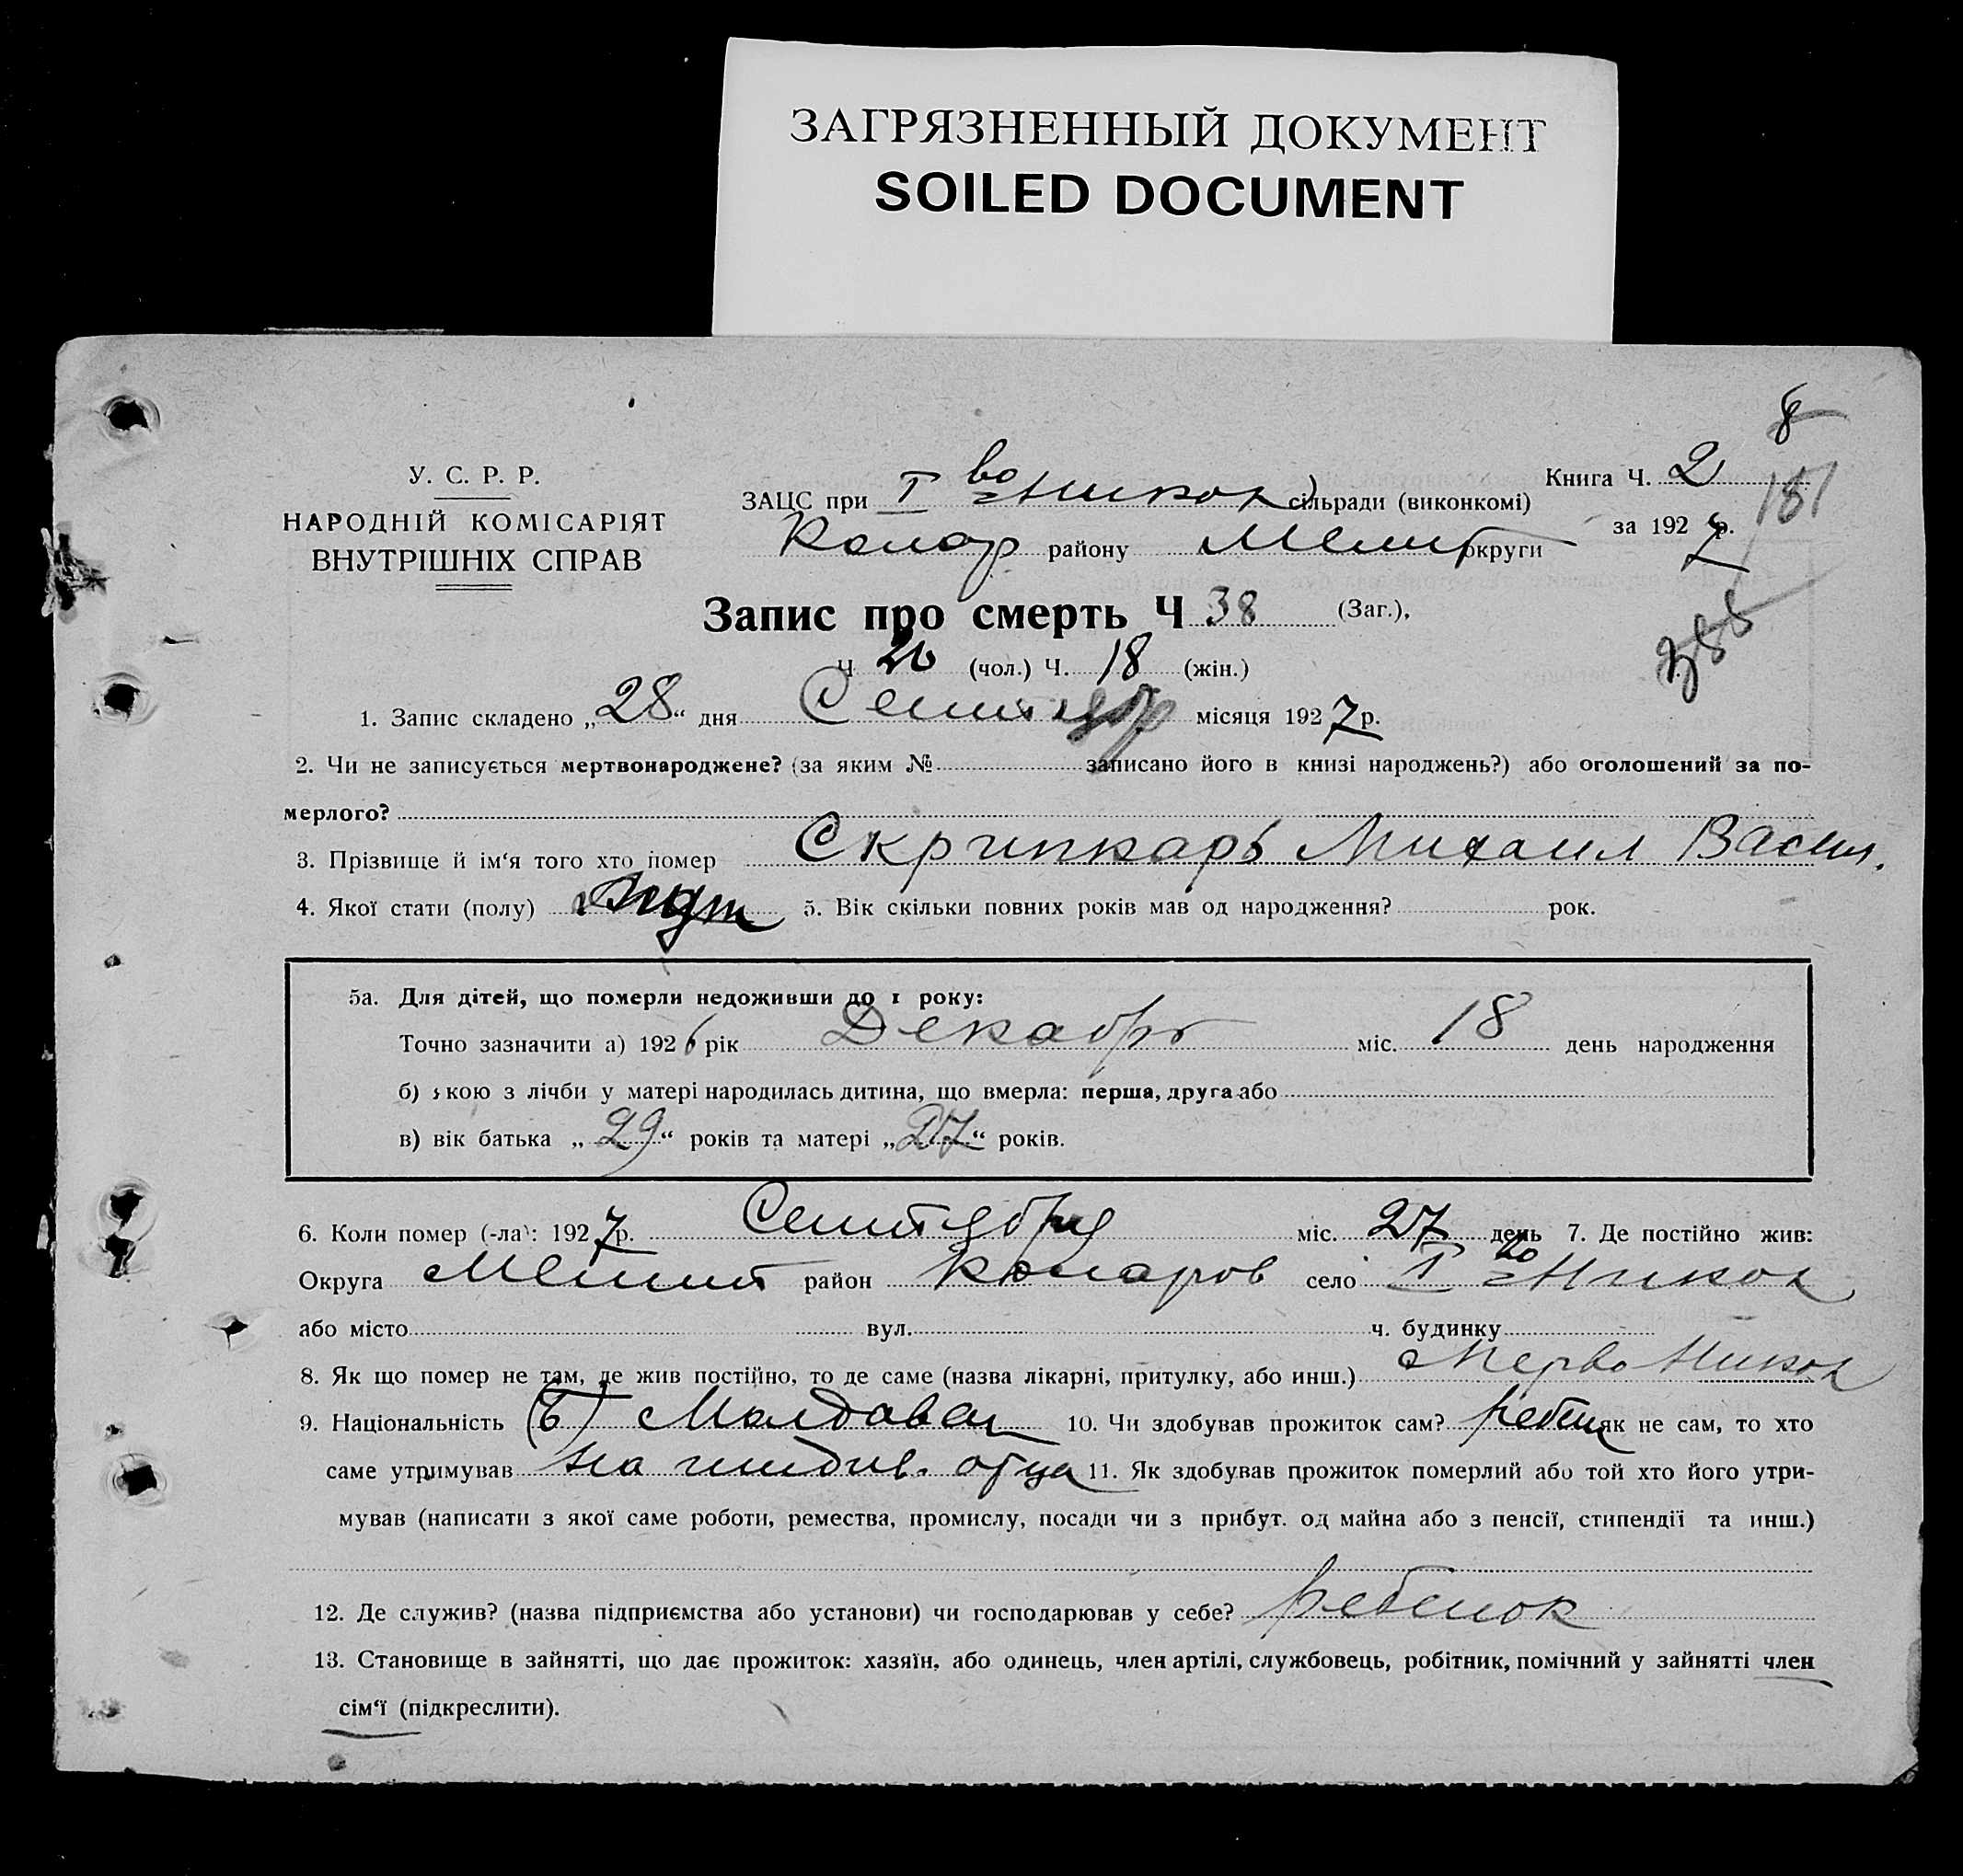 ЗАГРЯЗНЕННЫЙ ДОКУМЕНТ
SOILED DOCUMENT
8
У. С. Р. Р.
НАРОДНІЙ КОМІСАРІЯТ
ВНУТРІШНІХ СПРАВ
Книга Ч. 2
181
ЗАЦС при I во Никол сільради (виконкомі)
за 1927 р.
Комар району Мелит округи
Запис про смерть Ч 38 (Заг.),
Ч 20 (чол.) Ч. 18 (жін.)
388
1. Запис складено „28“ дня Сентябр місяця 1927 р.
2. Чи не записується мертвонароджене? (за яким № записано його в книзі народжень?) або оголошений за по-
мерлого?
3. Прізвище й ім‘я того хто помер Скрипкарь Михаил Васил.
4. Якої стати (полу) 5. Вік скільки повних років мав од народження? рок.
5а. Для дітей, що померли недоживши до 1 року:
Точно зазначити а) 1926 рік Декабрь міс. 18 день народження
б) якою з лічби у матері народилась дитина, що вмерла: перша, друга або
в) вік батька „29“ років та матері „27“ років.
6. Коли помер (-ла): 1927 р. Сентября міс. 27 день 7. Де постійно жив:
Округа Мелит район Комаров село I во Никол
або місто вул. ч. будинку
8. Як що помер не там, де жив постійно, то де саме (назва лікарні, притулку, або инш.) Перво Никол
9. Національність (6) Молдаван 10. Чи здобував прожиток сам? ребен як не сам, то хто
саме утримував на иждив. отца 11. Як здобував прожиток померлий або той хто його утри-
мував (написати з якої саме роботи, ремества, промислу, посади чи з прибут. од майна або з пенсії, стипендії та инш.)
12. Де служив? (назва підприємства або установи) чи господарював у себе? ребенок
13. Становище в зайнятті, що дає прожиток: хазяїн, або одинець, член артілі, службовець, робітник, помічний у зайнятті член
сім‘ї (підкреслити).